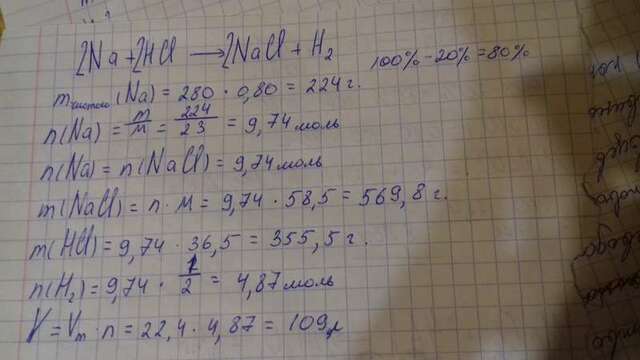 2Na + 2HCl → 2NaCl + H₂ 100% - 20% = 80%
m чистого (Na) = 280 · 0,80 = 224 г.
n(Na) = m/M = 224/23 = 9,74 моль
n(Na) = n(NaCl) = 9,74 моль
m(NaCl) = n · M = 9,74 · 58,5 = 569,8 г.
m(HCl) = 9,74 · 36,5 = 355,5 г.
n(H₂) = 9,74 · 1/2 = 4,87 моль
V = Vm · n = 22,4 · 4,87 = 109 л